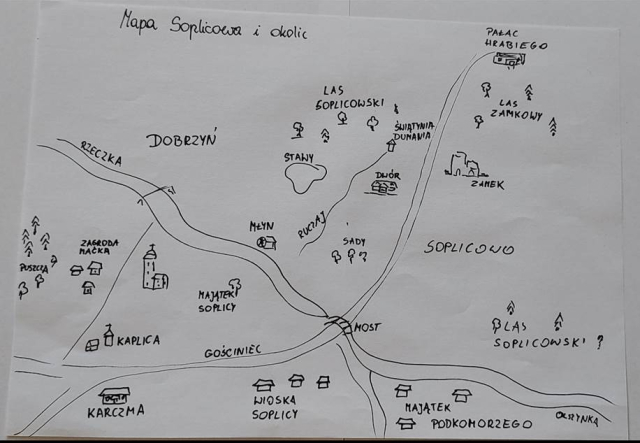 Mapa Soplicowa i okolic
PAŁAC
HRABIEGO
LAS
SOPLICOWSKI
LAS
ZAMKOWY
ŚWIĄTYNIA
DUMANIA
DOBRZYŃ
RZECZKA
STAWY
DWÓR
ZAMEK
MŁYN
RUCZAJ
ZAGRODA
MAĆKA
SADY
?
SOPLICOWO
PUSZCZA
?
MAJĄTEK
SOPLICY
MOST
LAS
SOPLICOWSKI ?
KAPLICA
GOŚCINIEC
KARCZMA
WIOSKA
SOPLICY
MAJĄTEK
PODKOMORZEGO